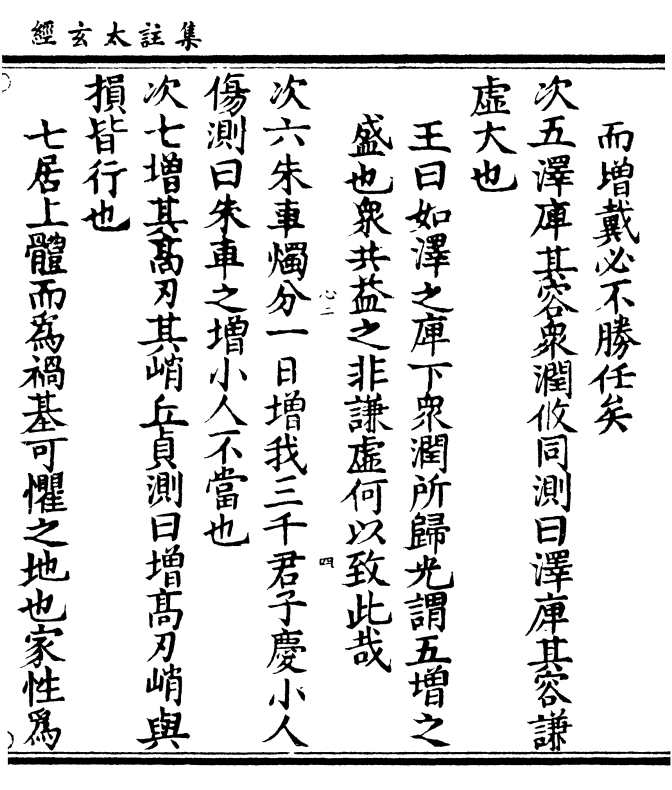 集註太玄經
而增戴必不勝任矣
次五澤庳其容衆潤攸同測曰澤庳其容謙
虛大也
王曰如澤之庳下衆潤所歸光謂五增之
盛也衆共益之非謙虛何以致此哉
次六朱車燭分一日增我三千君子慶小人
心二
四
傷測曰朱車之增小人不當也
次七增其高刃其峭丘貞測曰增高刃峭與
損皆行也
七居上體而爲禍基可懼之地也家性爲